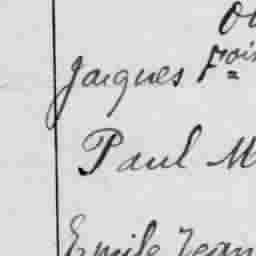 Jacques Fois
Paul M
Emile Jean